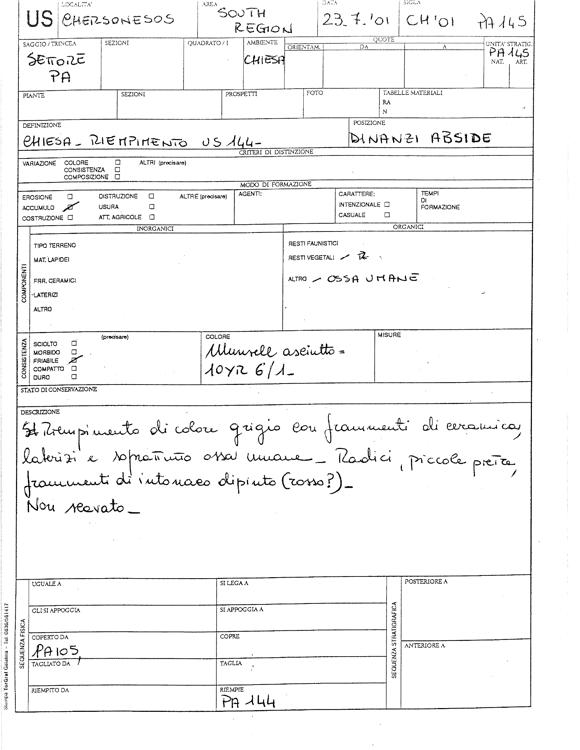 US
LOCALITA'
CHERSONESOS
AREA
SOUTH
REGION
DATA
23.7.'01
SIGLA
CH'01 PA 145
SAGGIO / TRINCEA
SETTORE
PA
SEZIONI
QUADRATO / I
AMBIENTE
CHIESA
QUOTE
ORIENTAM.
DA
A
UNITA' STRATIG.
PA 145
NAT. ART.
PIANTE
SEZIONI
PROSPETTI
FOTO
TABELLE MATERIALI
RA
N
DEFINIZIONE
CHIESA - RIEMPIMENTO US 144-
POSIZIONE
DINANZI ABSIDE
CRITERI DI DISTINZIONE
VARIAZIONE
COLORE
CONSISTENZA
COMPOSIZIONE
ALTRI (precisare)
MODO DI FORMAZIONE
EROSIONE
ACCUMULO
COSTRUZIONE
DISTRUZIONE
USURA
ATT. AGRICOLE
ALTRE (precisare)
AGENTI:
CARATTERE:
INTENZIONALE
CASUALE
TEMPI
DI
FORMAZIONE
COMPONENTI
INORGANICI
TIPO TERRENO
MAT. LAPIDEI
FRR. CERAMICI
LATERIZI
ALTRO
ORGANICI
RESTI FAUNISTICI
RESTI VEGETALI
ALTRO - OSSA UMANE
CONSISTENZA
(precisare)
SCIOLTO
MORBIDO
FRIABILE
COMPATTO
DURO
COLORE
Munsell asciutto =
10YR 6/1-
MISURE
STATO DI CONSERVAZIONE
DESCRIZIONE
Riempimento di colore grigio con frammenti di ceramica,
laterizi e soprattutto ossa umane - Radici, piccole pietre,
frammenti di intonaco dipinto (rosso?) -
Non scavato -
SEQUENZA FISICA
UGUALE A
SI LEGA A
GLI SI APPOGGIA
SI APPOGGIA A
COPERTO DA
PA105
COPRE
TAGLIATO DA
TAGLIA
RIEMPITO DA
RIEMPIE
PA 144
SEQUENZA STRATIGRAFICA
POSTERIORE A
ANTERIORE A